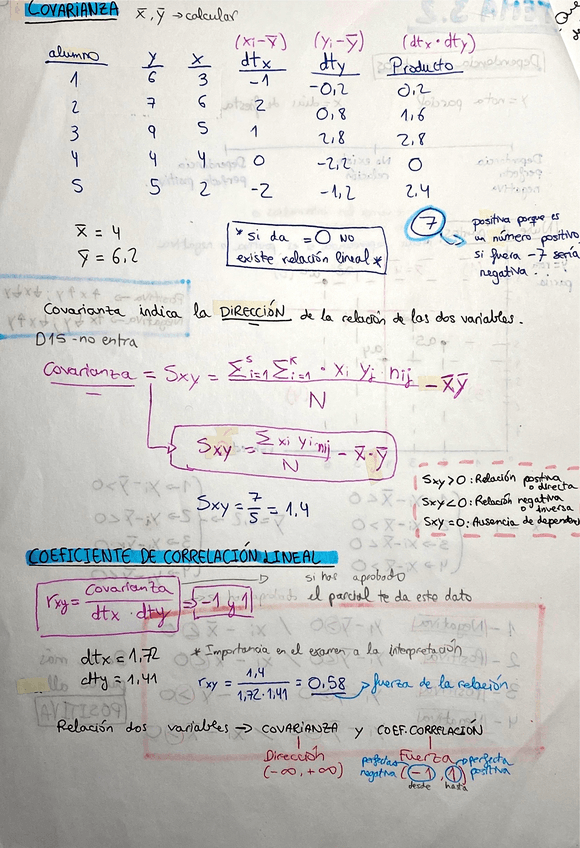 COVARIANZA x̄, ȳ → calcular
(xi-x̄) (yi-ȳ) (dtx · dty)
alumno y x dtx dty Producto
1 6 3 -1 -0,2 0,2
2 7 6 2 0,8 1,6
3 9 5 1 2,8 2,8
4 4 4 0 -2,2 0
5 5 2 -2 -1,2 2,4
7
positiva porque es
un número positivo
si fuera -7 sería
negativa...
x̄ = 4
ȳ = 6,2
* si da = 0 NO
existe relación lineal *
Covarianza indica la DIRECCIÓN de la relación de las dos variables.
D15 - no entra
Covarianza = Sxy = Σˢi=1 Σᴷi=1 · xi yj nij / N - x̄ȳ
Sxy = Σ xi yi·nij / N - x̄·ȳ
Sxy = 7/5 = 1,4
Sxy>0 : Relación positiva
o directa
Sxy<0 : Relación negativa
o inversa
Sxy=0 : Ausencia de
COEFICIENTE DE CORRELACIÓN LINEAL
rxy = covarianza / dtx · dty ⇒ -1 y 1
si has aprobado
el parcial te da este dato
dtx = 1,72
dty = 1,41
* Importancia en el examen a la interpretación
rxy = 1,4 / 1,72·1,41 = 0,58 → fuerza de la relación
Relación dos variables → COVARIANZA y COEF. CORRELACIÓN
Dirección
(-∞, +∞)
Fuerza
perfecta negativa (-1, 1) perfecta positiva
desde hasta